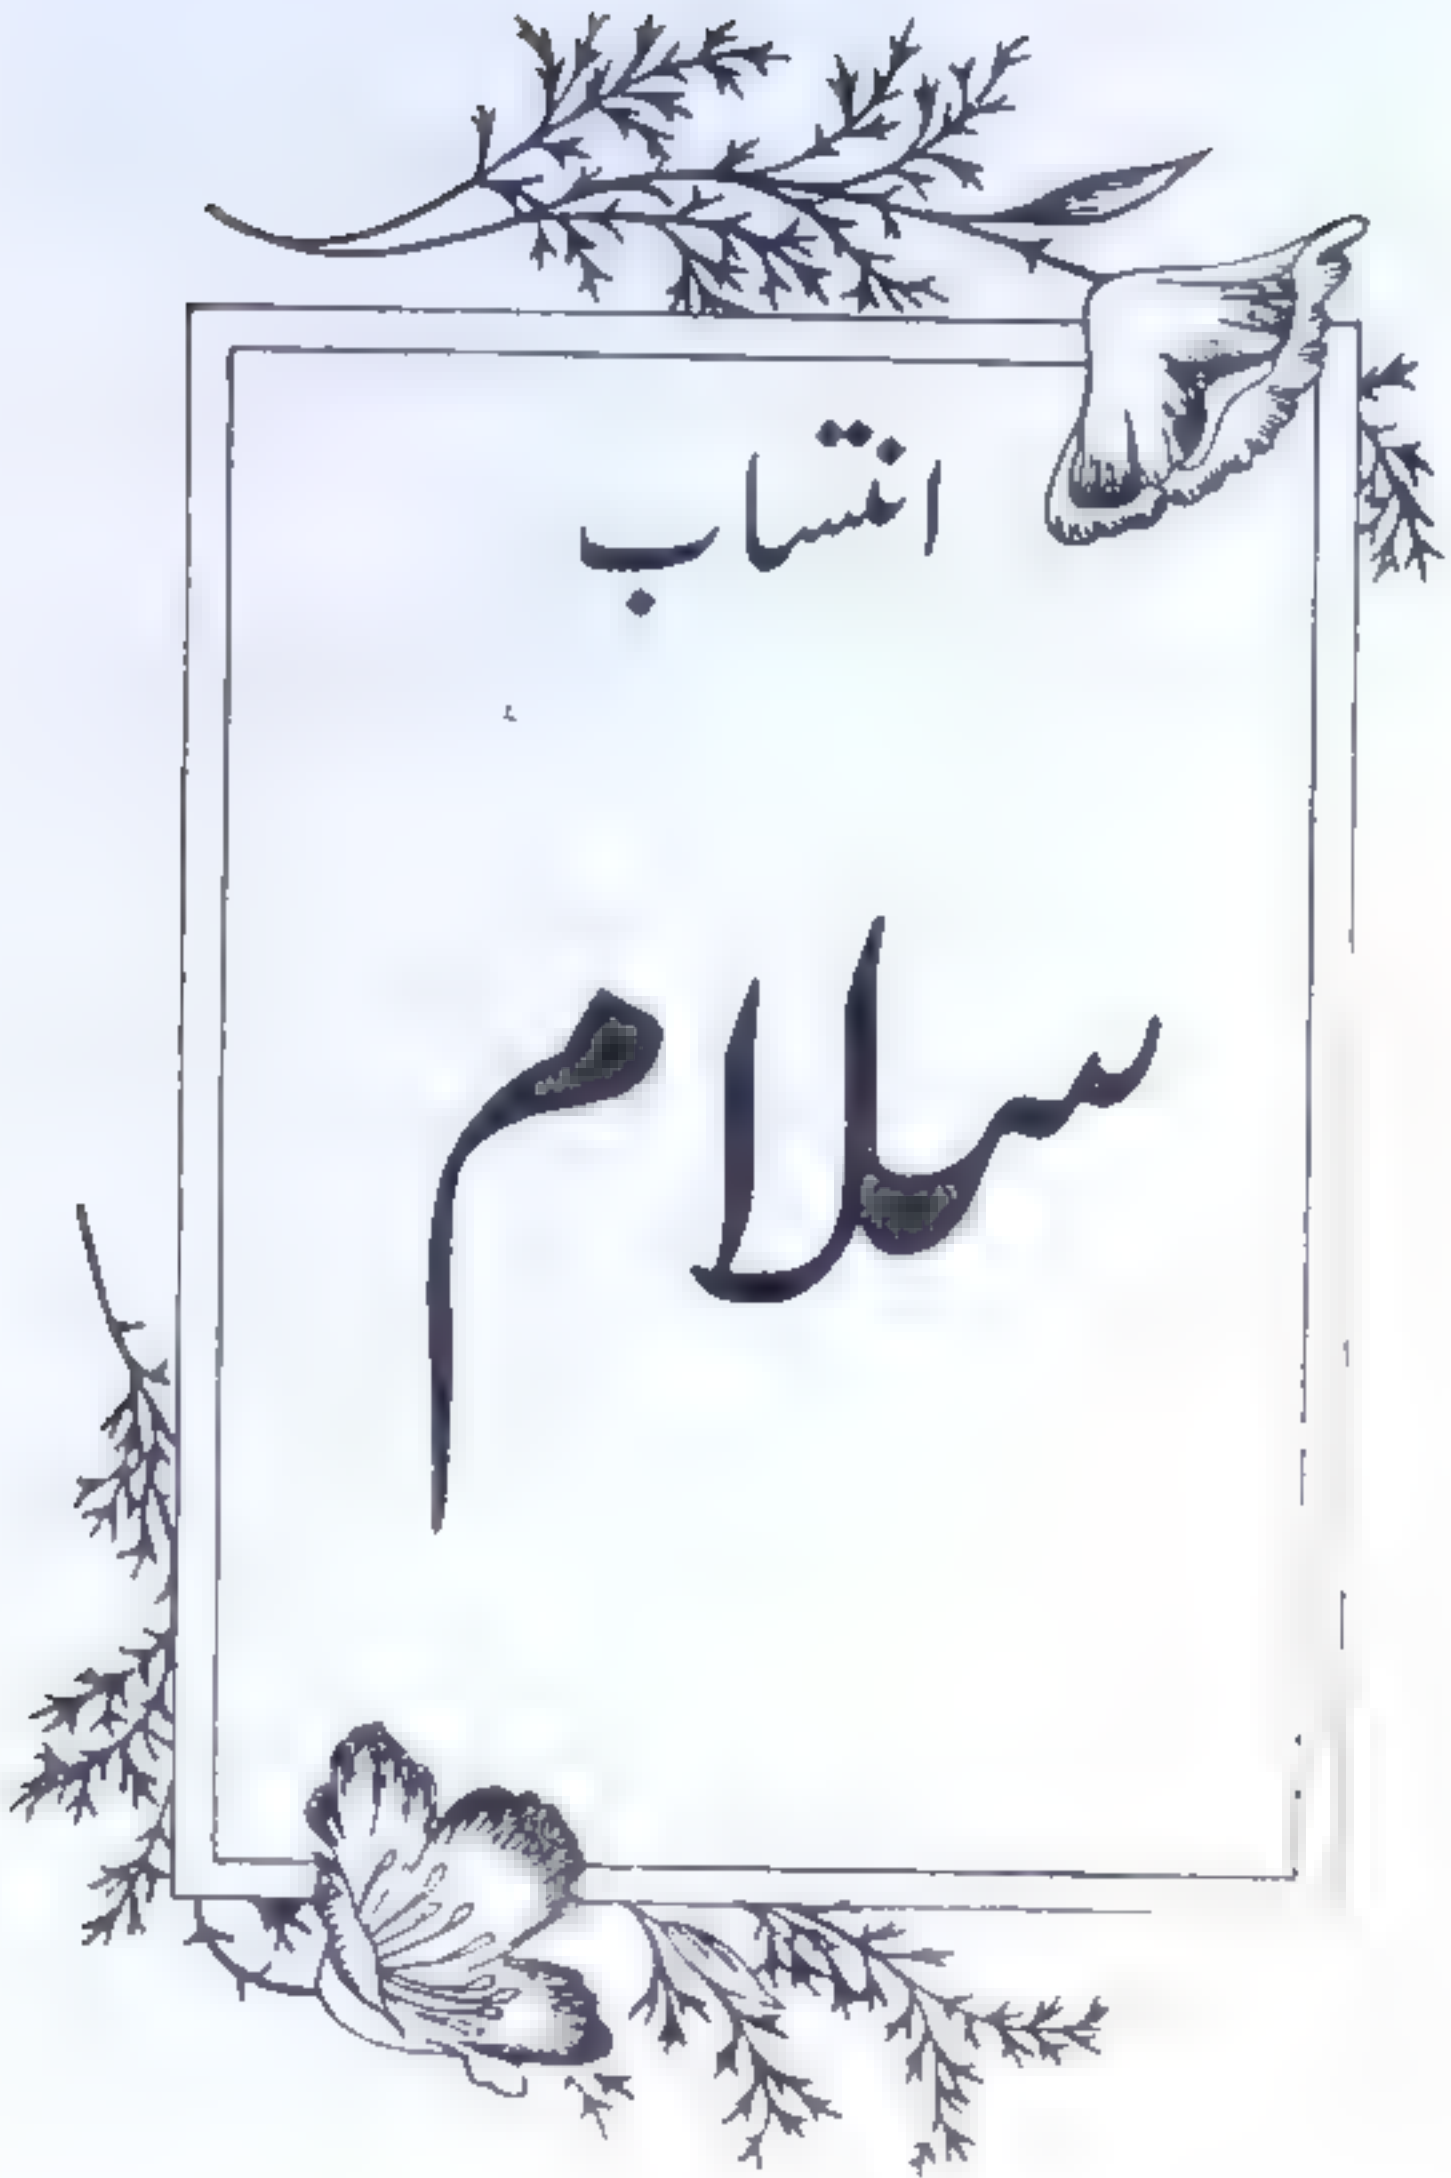 انتساب
سلام